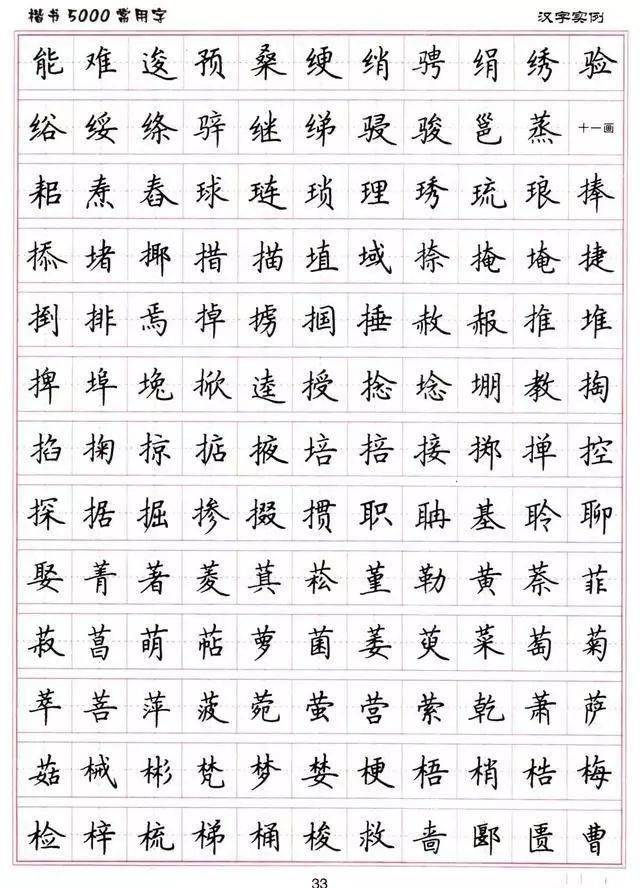 楷书5000常用字 汉字实例
能难逡预桑绠绡骋绢绣验
绤绥绦骍继绨骎骏邕蒸十一画
耜焘舂球琏琐理琇琉琅捧
掭堵揶措描埴域捺掩埯捷
捯排焉掉掳掴捶赦赧推堆
捭埠堍掀逵授捻埝堋教掏
掐掬掠掂掖培掊接掷掸控
探据掘掺掇掼职聃基聆聊
娶菁著菱萁菘堇勒黄萘菲
菽菖萌萜萝菌萎萸菜萄菊
萃菩萍菠菀萤营萦乾萧萨
菇械彬梵梦婪梗梧梢梏梅
检梓梳梯桶梭救啬郾匮曹
33